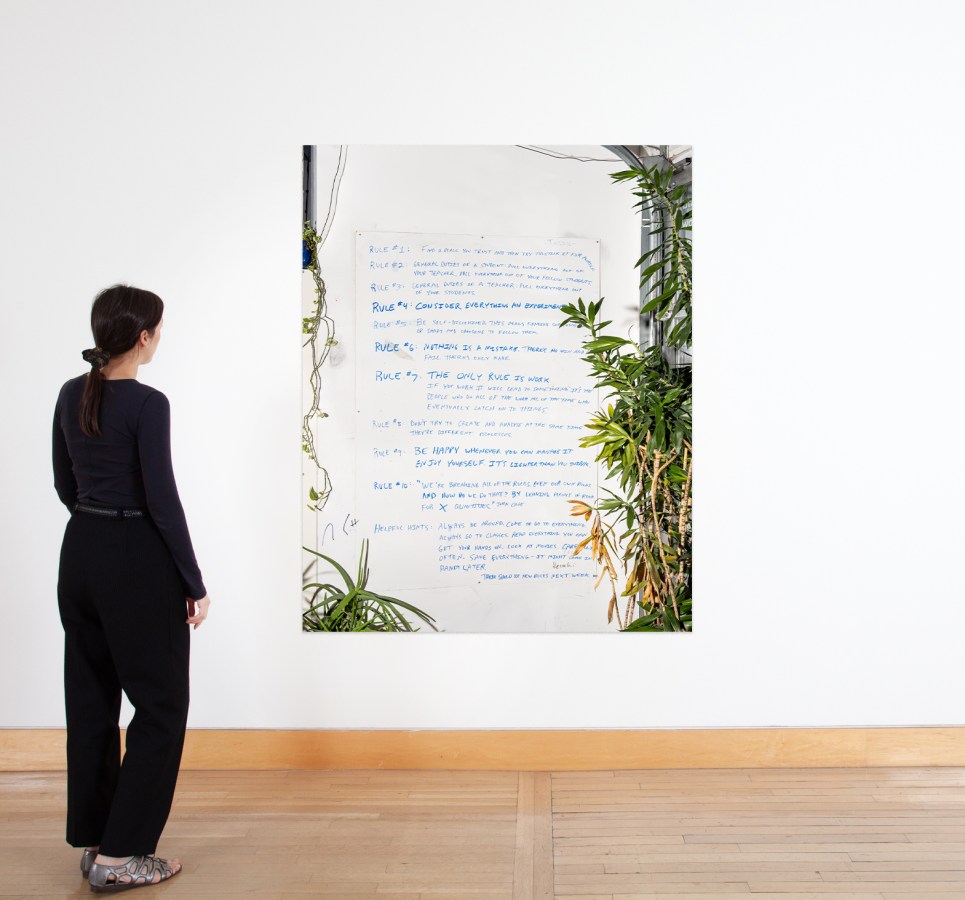 RULE #1: FIND A PLACE YOU TRUST AND TRY
RULE #2: GENERAL DUTIES OF A STUDENT: PULL EVERYTHING OUT OF
YOUR TEACHER, PULL EVERYTHING OUT OF YOUR FELLOW STUDENTS
RULE #3: GENERAL DUTIES OF A TEACHER: PULL EVERYTHING OUT
OF YOUR STUDENTS
RULE #4: CONSIDER EVERYTHING AN EXPERIMENT
RULE #5: BE SELF-DISCIPLINED THIS MEANS FINDING
OR SMART AND CHOOSING TO FOLLOW THEM.
RULE #6: NOTHING IS A MISTAKE. THERE'S NO WIN AND
FAIL. THERE'S ONLY MAKE.
RULE #7: THE ONLY RULE IS WORK
IF YOU WORK IT WILL LEAD TO SOMETHING. IT'S THE
PEOPLE WHO DO ALL OF THE WORK ALL OF THE TIME WHO
EVENTUALLY CATCH ON TO THINGS
RULE #8: DON'T TRY TO CREATE AND ANALYSE AT THE SAME TIME
THEY'RE DIFFERENT PROCESSES
RULE #9: BE HAPPY WHENEVER YOU CAN MANAGE IT
ENJOY YOURSELF. IT'S LIGHTER THAN YOU THINK.
RULE #10: "WE'RE BREAKING ALL OF THE RULES. EVEN OUR OWN RULES
AND HOW DO WE DO THAT? BY LEAVING PLENTY OF ROOM
FOR X QUANTITIES" JOHN CAGE
HELPFUL HINTS: ALWAYS BE AROUND. COME OR GO TO EVERYTHING.
ALWAYS GO TO CLASSES. READ EVERYTHING YOU CAN
GET YOUR HANDS ON. LOOK AT MOVIES CAREFULLY
OFTEN. SAVE EVERYTHING - IT MIGHT COME IN
HANDY LATER.
THERE SHOULD BE NEW RULES NEXT WEEK.